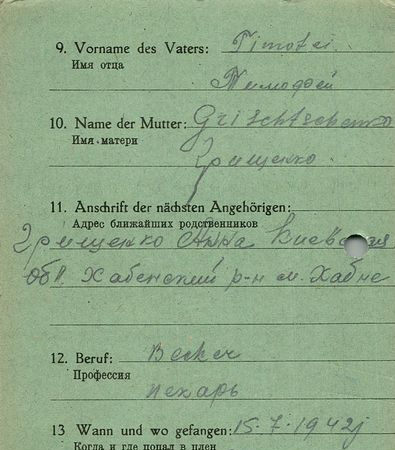 9. Vorname des Vaters: Timofei.
Имя отца
Тимофей
10. Name der Mutter: Grischtschenko
Имя матери
Грищенко.
11. Anschrift der nächsten Angehörigen:
Адрес ближайших родственников
Грищенко Анна Киевская
обл. Хабенский р-н м. Хабне
12. Beruf: Becker
Профессия
пекарь
13 Wann und wo gefangen: 15.7.1942j
Когда и где попал в плен